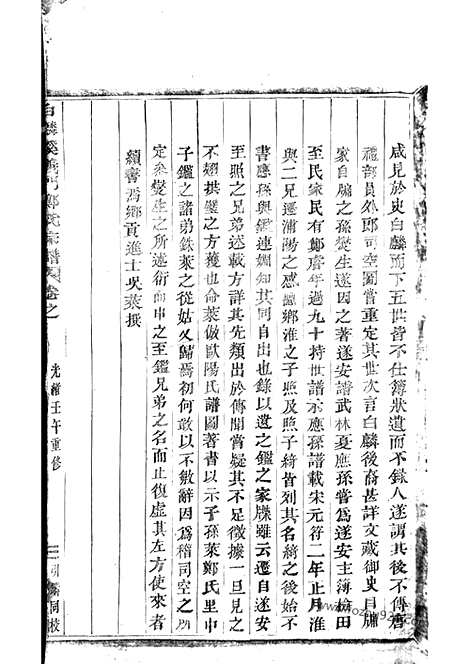 咸見於史白麟而下五世皆不仕簿狀遺而不錄人遂謂其後不傳唐
禮部員外郎司空圖嘗重定其世次言白麟後裔甚詳文藏御史自牖
家自牖之孫燮生遂因之著遂安譜武林夏應孫嘗爲遂安主簿檢田
至民家民有鄭詹年過九十持世譜示應孫譜載宋元符二年正月淮
與二兄遷浦陽之感德鄉淮之子照及照子綺皆列其名綺之後始不
書應孫與鑑連姻知其同自出也錄以遺之鑑之家牒雖云遷自遂安
至照之兄弟述載方詳其先類出於傳聞嘗疑其不足徵據一旦見之
不翅拱璧之方獲也命萊倣歐陽氏譜圖著書以示子孫萊鄭氏里中
子鑑之諸弟銖萊之從姑又歸焉初何敢以不敏辭因爲稽司空之所
定參燮生之所述衍而申之至鑑兄弟之名而止復虛其左方使來者
續書焉鄉貢進士吳萊撰
白麟溪義門鄭氏宗譜 卷之
光緒壬午重修